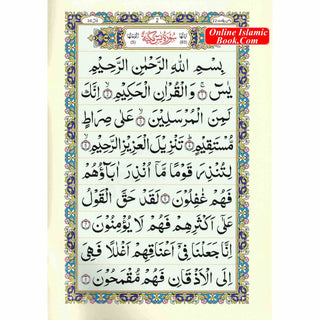 Online Islamic
Book.Com
2
سُوْرَةُ يٰسٓ مَكِّيَّةٌ
بِسْمِ اللهِ الرَّحْمٰنِ الرَّحِيْمِ
يٰسٓ ۝١ وَالْقُرْاٰنِ الْحَكِيْمِ ۝٢ اِنَّكَ
لَمِنَ الْمُرْسَلِيْنَ ۝٣ عَلٰى صِرَاطٍ
مُّسْتَقِيْمٍ ۝٤ تَنْزِيْلَ الْعَزِيْزِ الرَّحِيْمِ ۝٥
لِتُنْذِرَ قَوْمًا مَّاۤ اُنْذِرَ اٰبَآؤُهُمْ
فَهُمْ غٰفِلُوْنَ ۝٦ لَقَدْ حَقَّ الْقَوْلُ
عَلٰٓى اَكْثَرِهِمْ فَهُمْ لَا يُؤْمِنُوْنَ ۝٧
اِنَّا جَعَلْنَا فِيْۤ اَعْنَاقِهِمْ اَغْلٰلًا فَهِيَ
اِلَى الْاَذْقَانِ فَهُمْ مُّقْمَحُوْنَ ۝٨